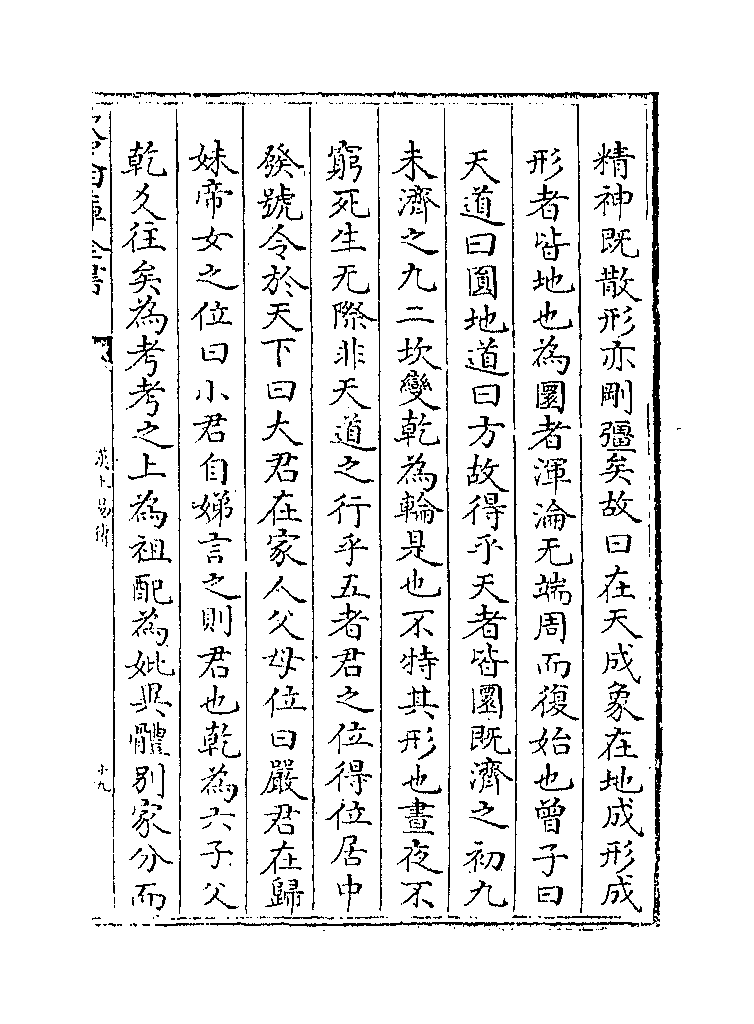 精神既散形亦剛彊矣故曰在天成象在地成形成
形者皆地也為圜者渾淪无端周而復始也曾子曰
天道曰圓地道曰方故得乎天者皆圜既濟之初九
未濟之九二坎變乾為輪是也不特其形也晝夜不
窮死生无際非天道之行乎五者君之位得位居中
發號令於天下曰大君在家人父母位曰嚴君在歸
妹帝女之位曰小君自娣言之則君也乾為六子父
乾久往矣為考考之上為祖配為妣異體別家分而
漢上易傳
十九